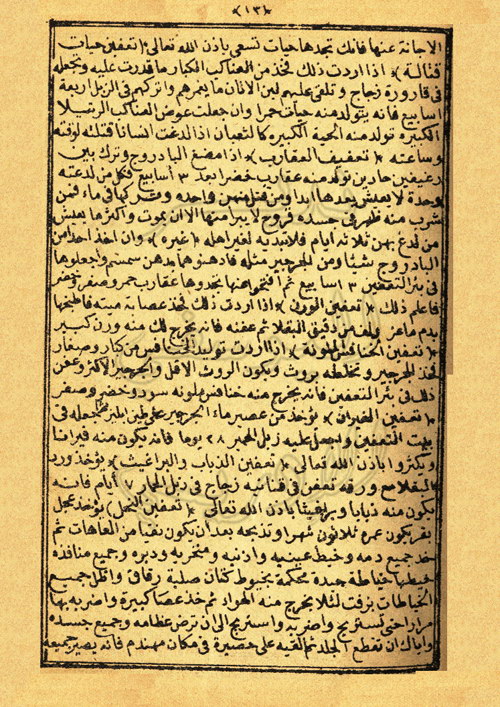 ﴿١٣﴾
الاجانة عنها فانك تجدها حيات تسعى باذن الله تعالى ﴿تعفين حيات
قتالة﴾ اذا اردت ذلك فخذ من العناكب الكبار ما قدرت عليه وتجعله
فى قارورة زجاج وتلقى عليهم لبن الاتان ما يغمرهم واتركهم فى الزبل اربعة
اسابيع فانه يتولد منه حيات حمرا وان جعلت عوض العناكب الرتيلا
الكبيره تولد منه الحية الكبيره كالثعبان اذا لدغت انسانا قتلته لوقته
وساعته ﴿تعفيف العقارب﴾ اذا مضغ البادروج وترك بين
رغيفين حارين تولد منه عقارب خضرا بعد ٣ أسابيع فكل من لدغته
وحدة لا يعش بعدها ابدا ومن قتل منهن واحده وتركها فى ماء فمن
شرب منه ظهر فى جسده قروح لا يبرا منها الا ان يموت واكثر ما يعش
من لدغ بهن ثلاثة ايام فلا تبديه لغير اهله ﴿غيره﴾ وان اخذ احد من
البادروج شيئا ومن الجرجير مثله فادهنوهما بدهن سمسم واجعلوها
فى بئر التعفين ٣ اسابيع ثم أفتحوا عنها تجدوها عقارب حمر وصفر وخضر
فاعلم ذلك ﴿تعفين الوزن﴾ اذا اردت ذلك فخذ عصابة ميته فاطبخها
بدم ماعز ولف من دقيق الباقلا ثم عفنه فانه يخرج لك منه وزن كبير
﴿تعفين الخنافس الملونة﴾ اذا اردت توليد الخنافس من كبار وصغار
فخذ الجرجير وتخلطه بروث ويكون الروث الاقل والجرجير الاكثر وعفن
ذلك فى بئر التعفين فانه يخرج منه خنافس ملونه سود وخضر وصفر
﴿تعفين الفيران﴾ يؤخذ من عصير ماء الجرجير على طين ابليز فتجعله فى
بيت التعفين وتجعل عليه زبل الحمير ٢٨ يوما فانه يكون منه فيرانا
وتكثروا باذن الله تعالى ﴿تعفين الذباب والبراغيث﴾ يؤخذ ورد
الباقلا مع ورقه تعفن فى قنانيه زجاج فى زبل الحمار ٧ أيام فانه
يكون منه ذبابا وبراغيثا باذن الله تعالى ﴿تعفين النحل﴾ يؤخذ عجل
بقر يكون عمره ثلاثون شهرا وتذبحه بعد أن يكون نقيا من العاهات ثم
خذ جميع دمه وخيط عينيه واذنيه ومنخريه ودبره وجميع منافذه
خيطها خياطة جيدة محكمة بخيوط كتان صلبة رقاق واطل جميع
الخياطات بزفت لئلا يخرج منه الهواء ثم خذ عصا كبيرة واضربه بها
مرارا حتى تستريح واضربه واستريح الى ان ترض عظامه وجميع جسده
واياك ان تقطع الجلد ثم القيه على حصيرة فى مكان مهندم فانه يصير جميعه